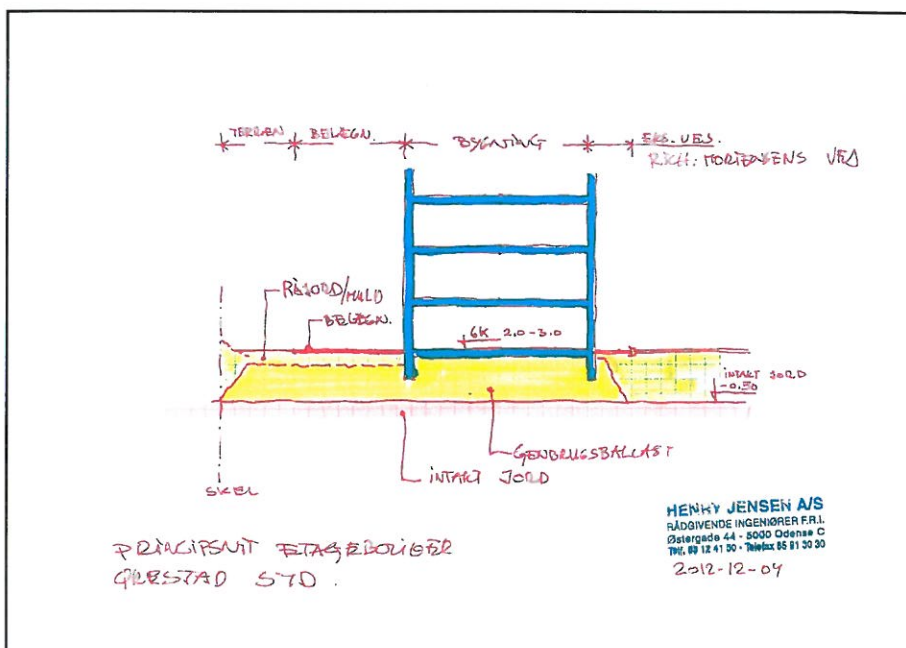 TERRÆN BELÆGN. BYGNING EKS. VEJ.
RICH. MORTENSENS VEJ
RÅJORD/MULD
BELÆGN.
GK 2.0-3.0
INTAKT JORD
-0.50
GENBRUGSBALLAST
INTAKT JORD
SKEL
PRINCIPSNIT ETAGEBOLIGER
ØRESTAD SYD.
HENRY JENSEN A/S
RÅDGIVENDE INGENIØRER F.R.I.
Østergade 44 - 5000 Odense C
2012-12-04